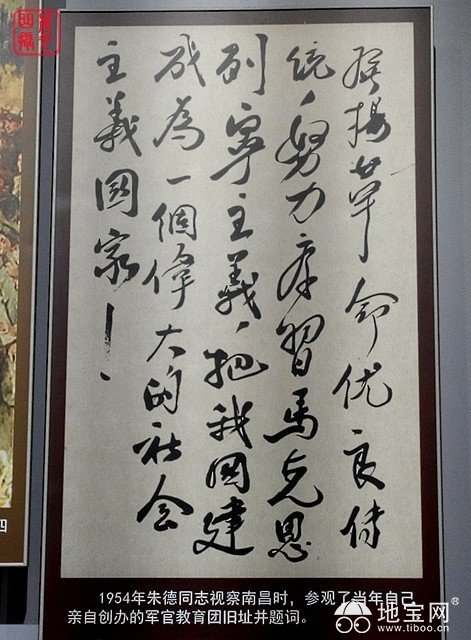 發揚革命优良传
统，努力学習馬克思
列寧主義，把我國建
成為一個偉大的社会
主義國家！
1954年朱德同志视察南昌时，参观了当年自己
亲自创办的军官教育团旧址并题词。
四
地宝网®
www.tiboo.cn